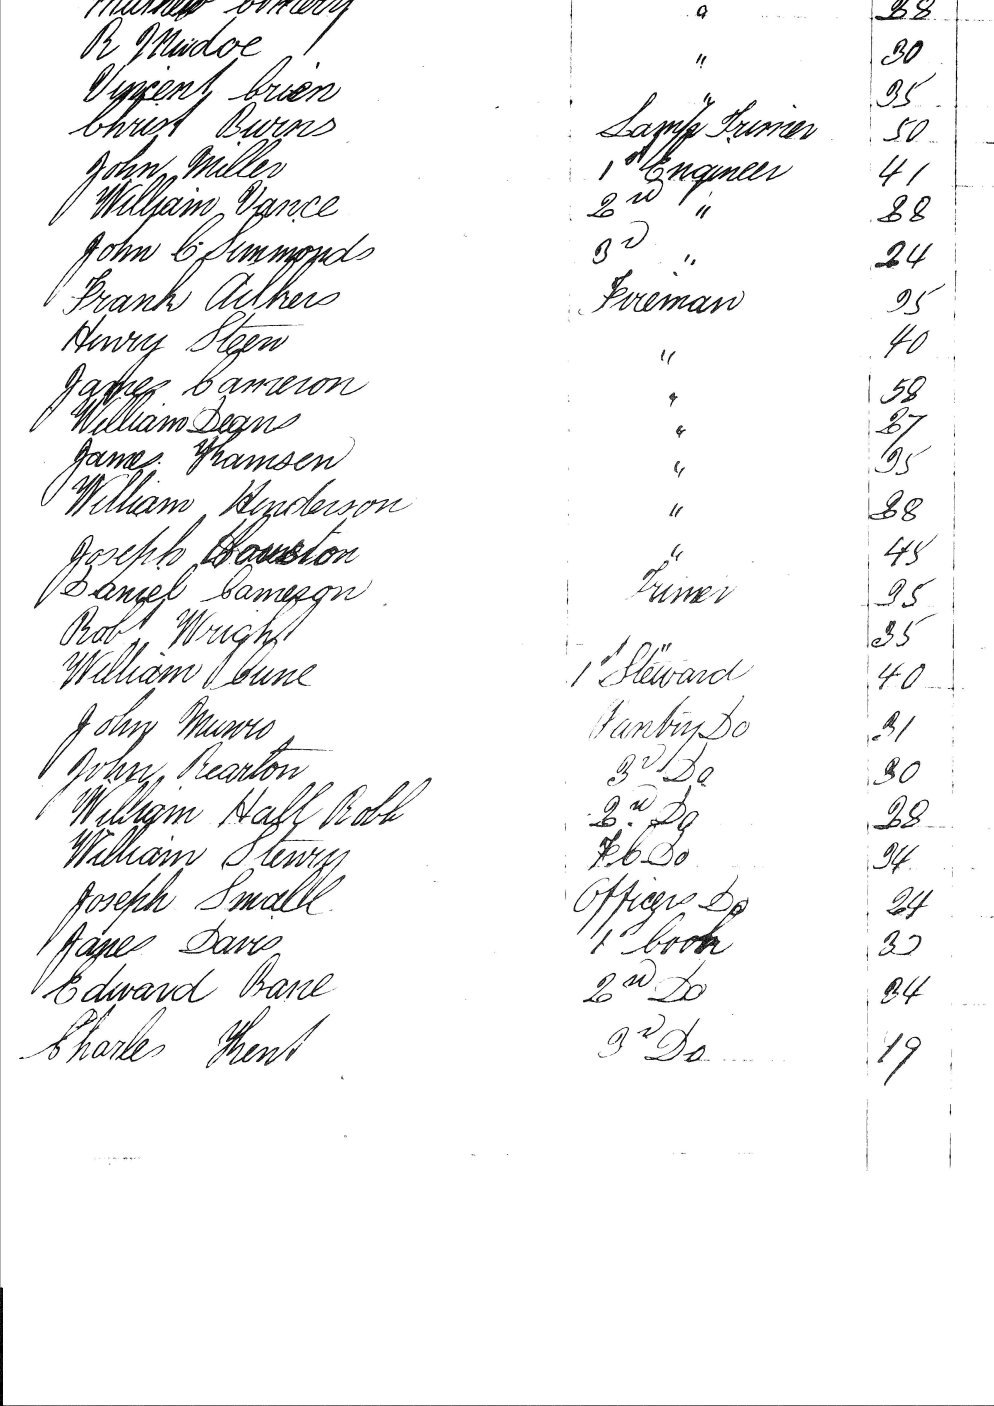 " 28
R " 30
Vincent Crien " 35
Christ Burns Lamp Trimer 50
John Miller 1st Engineer 41
William Vance 2nd " 28
John C Simmonds 3rd " 24
Frank Aitkers Fireman 35
Henry Steen " 40
James Cameron " 58
William Degns " 27
James " 35
William Henderson " 28
Joseph Houston " 45
Daniel Cameron Trimer 35
Robt Wright " 35
William Cune 1st Steward 40
John Munro Do 31
John Rearton 3rd Do 30
William Hall Robb 2nd Do 28
William Do 34
Joseph Small Officers Do 24
James Davis 1st Cook 30
Edward Bane 2nd Do 34
Charles Kent 3rd Do 19